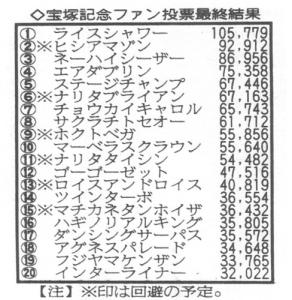 ◇宝塚記念ファン投票最終結果
① ライスシャワー 105,779
②※ヒシアマゾン 92,912
③ ネーハイシーザー 86,956
④ エアダブリン 75,358
⑤ ステージチャンプ 67,446
⑥※ナリタブライアン 67,163
⑦ チョウカイキャロル 65,743
⑧ サクラチトセオー 61,712
⑨※ホクトベガ 55,856
⑩ マーベラスクラウン 55,640
⑪※ナリタタイシン 54,482
⑫ ゴーゴーゼット 47,516
⑬※ロイスアンドロイス 40,819
⑭ ツインターボ 36,554
⑮※マチカネタンホイザ 36,432
⑯ ハギノリアルキング 35,805
⑰ ダンシングサーパス 35,572
⑱ アグネスパレード 34,648
⑲ フジヤマケンザン 33,765
⑳ インターライナー 32,022
【注】※印は回避の予定。